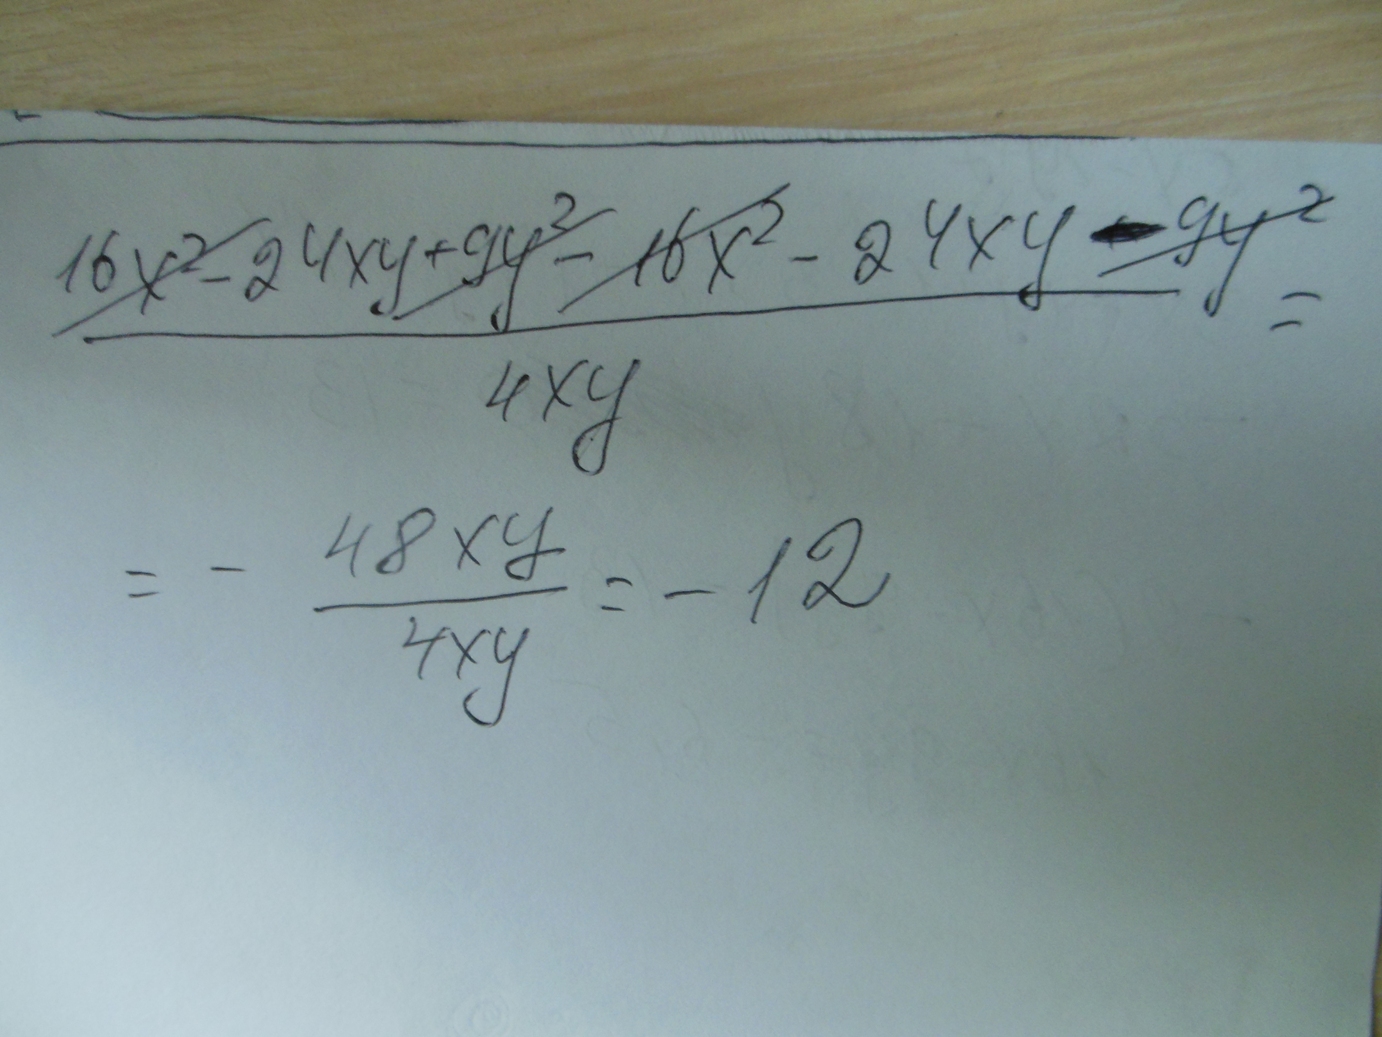 16x² - 24xy + 9y² - 16x² - 24xy - 9y² =
4xy
= - 48xy / 4xy = - 12